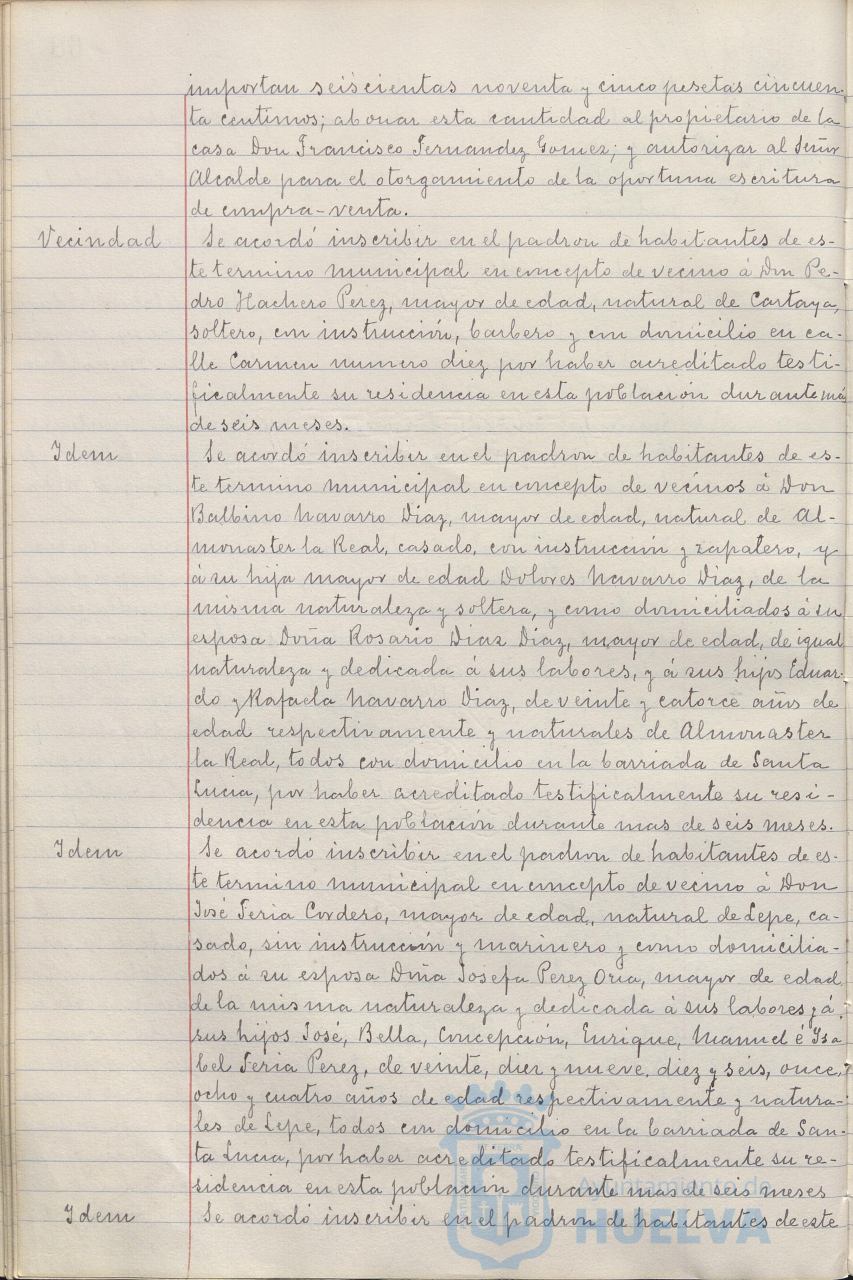 importan seiscientas noventa y cinco pesetas cincuen-
ta centimos; abonar esta cantidad al propietario de la
casa Don Francisco Fernandez Gomez; y autorizar al Señor
Alcalde para el otorgamiento de la oportuna escritura
de compra-venta.
Vecindad Se acordó inscribir en el padron de habitantes de es-
te termino municipal en concepto de vecino á Don Pe-
dro Hachero Perez, mayor de edad, natural de Cartaya,
soltero, con instrucción, barbero y con domicilio en ca-
lle Carmen numero diez por haber acreditado testi-
ficalmente su residencia en esta población durante más
de seis meses.
Idem Se acordó inscribir en el padron de habitantes de es-
te termino municipal en concepto de vecinos á Don
Balbino Navarro Diaz, mayor de edad, natural de Al-
monaster la Real, casado, con instrucción y zapatero, y
á su hija mayor de edad Dolores Navarro Diaz, de la
misma naturaleza y soltera, y como domiciliados á su
esposa Doña Rosario Diaz Diaz, mayor de edad, de igual
naturaleza y dedicada á sus labores, y á sus hijos Eduar-
do y Rafaela Navarro Diaz, de veinte y catorce años de
edad respectivamente y naturales de Almonaster
la Real, todos con domicilio en la barriada de Santa
Lucia, por haber acreditado testificalmente su resi-
dencia en esta población durante mas de seis meses.
Idem Se acordó inscribir en el padron de habitantes de es-
te termino municipal en concepto de vecino á Don
José Feria Cordero, mayor de edad, natural de Lepe, ca-
sado, sin instrucción y marinero y como domicilia-
dos á su esposa Doña Josefa Perez Oria, mayor de edad,
de la misma naturaleza y dedicada á sus labores y á
sus hijos José, Bella, Concepción, Enrique, Manuel é Isa
bel Feria Perez, de veinte, diez y nueve, diez y seis, once,
ocho y cuatro años de edad respectivamente y natura-
les de Lepe, todos con domicilio en la barriada de San-
ta Lucia, por haber acreditado testificalmente su re-
sidencia en esta población durante mas de seis meses
Idem Se acordó inscribir en el padron de habitantes de este
Ayuntamiento de
HUELVA